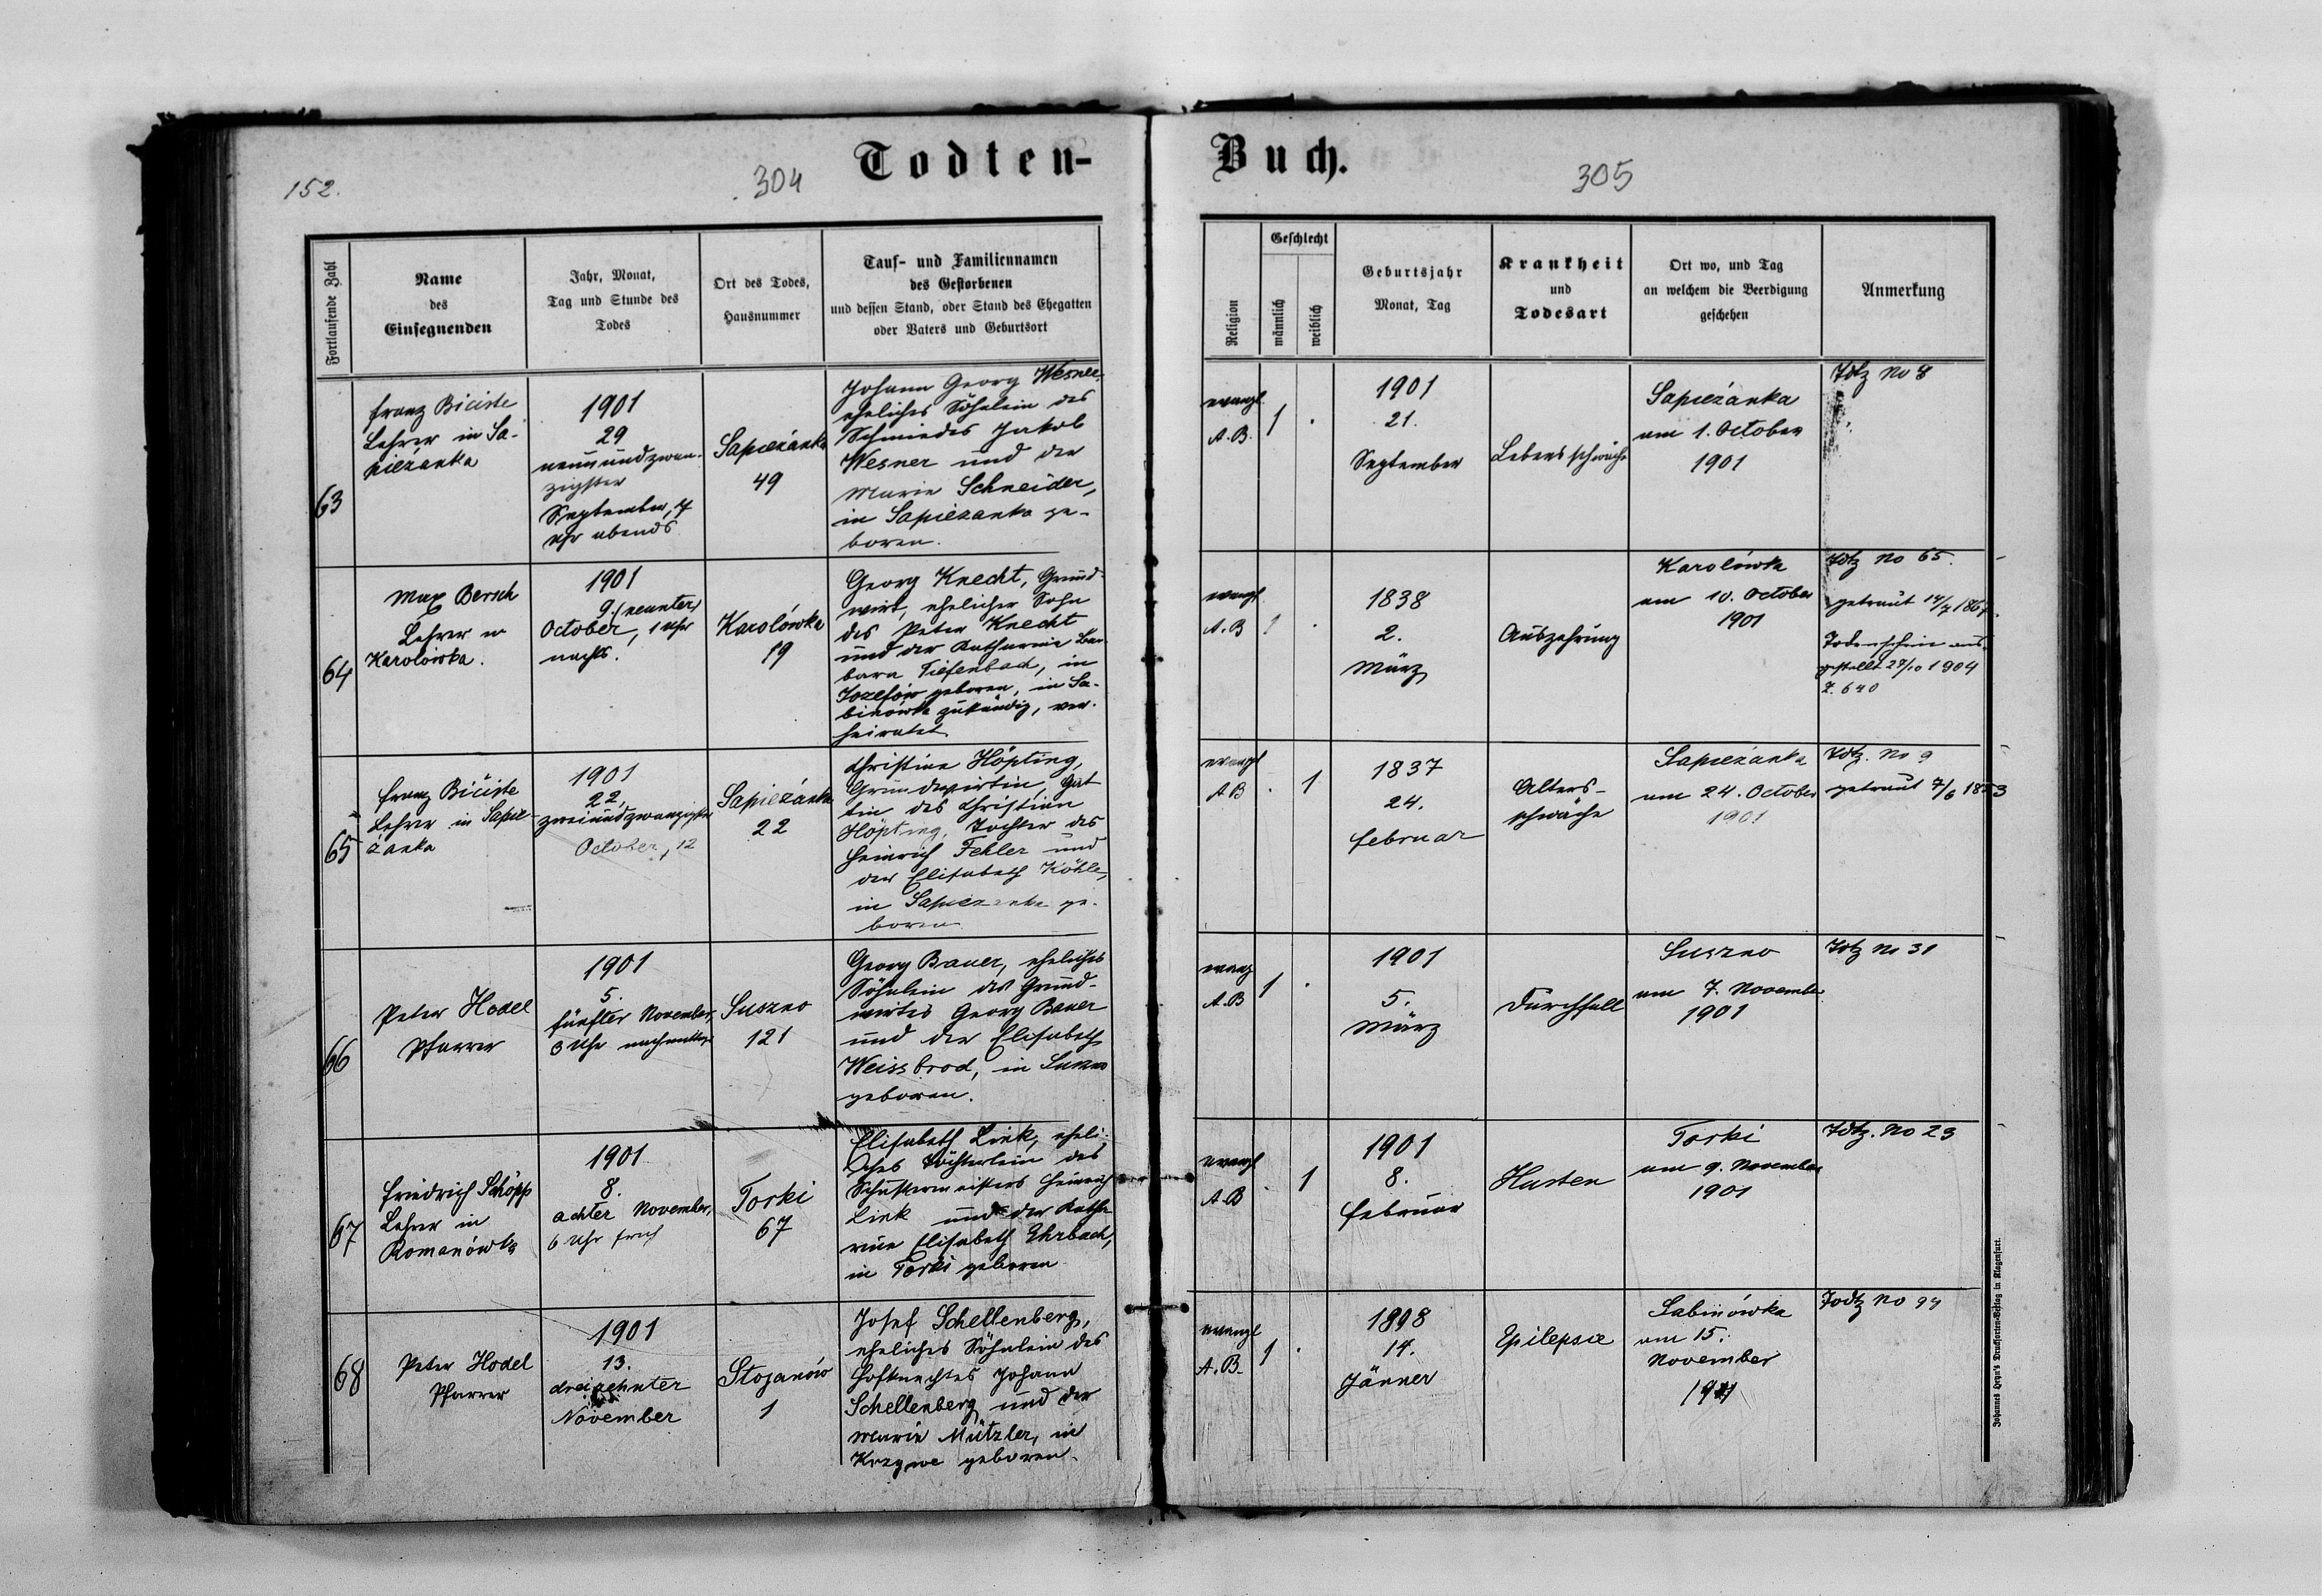 152.
304
Todten-
Buch.
305
Fortlaufende Zahl
Name
des
Einsegnenden
Jahr, Monat,
Tag und Stunde des
Todes
Ort des Todes,
Hausnummer
Tauf- und Familiennamen
des Gestorbenen
und dessen Stand, oder Stand des Ehegatten
oder Vaters und Geburtsort
Religion
Geschlecht
männlich
weiblich
Geburtsjahr
Monat, Tag
Krankheit
und
Todesart
Ort wo, und Tag
an welchem die Beerdigung
geschehen
Anmerkung
63
Franz Biciste
Lehrer in Sa-
pieżanka
1901
29
neunundzwan-
zigster
September, 4
Uhr abends
Sapieżanka
49
Johann Georg Wesner,
eheliches Söhnlein des
Schmiedes Jakob
Wesner und der
Marie Schneider,
in Sapieżanka ge-
boren.
evangl.
A.B.
1
.
1901
21.
September
Lebensschwäche
Sapieżanka
am 1. October
1901
Tdtz No 8
64
Max Bersch
Lehrer in
Karolówka.
1901
9. (neunter)
October, 1 Uhr
nachts.
Karolówka
19
Georg Knecht, Grund-
wirt, ehelicher Sohn
des Peter Knecht
und der Katharine Bar-
bara Tiefenbach, in
Józefów geboren, in Sa-
binówka zuständig, ver-
heiratet
evangl
A.B
1
.
1838
2.
März
Auszehrung
Karolówka
am 10. October
1901
Tdtz No 65.
getraut 14/7 186
Todenschein aus-
gestellt 27/10 1904
Z. 640
65
Franz Biciste
Lehrer in Sapie-
żanka
1901
22.
zweiundzwanzigster
October, 12
Sapieżanka
22
Christine Höpting,
Grundwirtin, Gat-
tin des Christian
Höpting, Tochter des
Heinrich Fehler und
der Elisabeth Köhle,
in Sapieżanka ge-
boren
evangl
A B
.
1
1837
24.
Februar
Alters-
schwäche
Sapieżanka
am 24. October
1901
Tdtz. No 9
getraut 7/6 1853
66
Peter Hodel
Pfarrer
1901
5.
fünfter November,
3 Uhr nachmittags
Suszno
121
Georg Bauer, eheliches
Söhnlein des Grund-
wirtes Georg Bauer
und der Elisabeth
Weissbrod, in Suszno
geboren.
evang
A.B
1
.
1901
5.
März
Durchfall
Suszno
am 7. November
1901
Tdtz No 31
67
Friedrich Schöpp
Lehrer in
Romanówka
1901
8.
achter November,
6 Uhr früh
Torki
67
Elisabeth Link, eheli-
ches Töchterlein des
Schustermeisters Heinrich
Link und der Katha-
rine Elisabeth Ehrbach,
in Torki geboren
evangl
A.B
.
1
1901
8.
Februar
Husten
Torki
am 9. November
1901
Tdtz. No 23
68
Peter Hodel
Pfarrer
1901
13.
dreizehnter
November
Stojanów
1
Josef Schellenberg,
eheliches Söhnlein des
Hofknechtes Johann
Schellenberg und der
Marie Mützler, in
geboren.
evangl
A.B.
1
.
1898
14.
Jänner
Epilepsie
Sabinówka
am 15.
November
1901
Todtz No 94
Johannes Heyn's Drucksorten-Verlag in Klagenfurt.